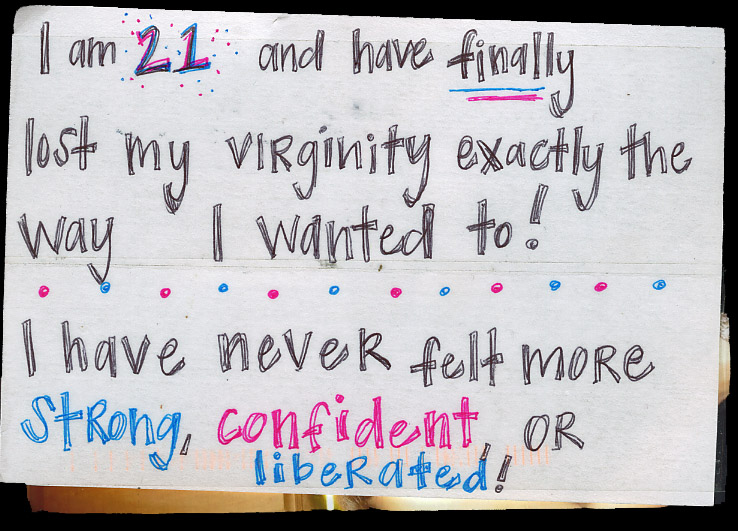 I am 21 and have finally
lost my virginity exactly the
way I wanted to!
I have never felt more
strong, confident, or
liberated!